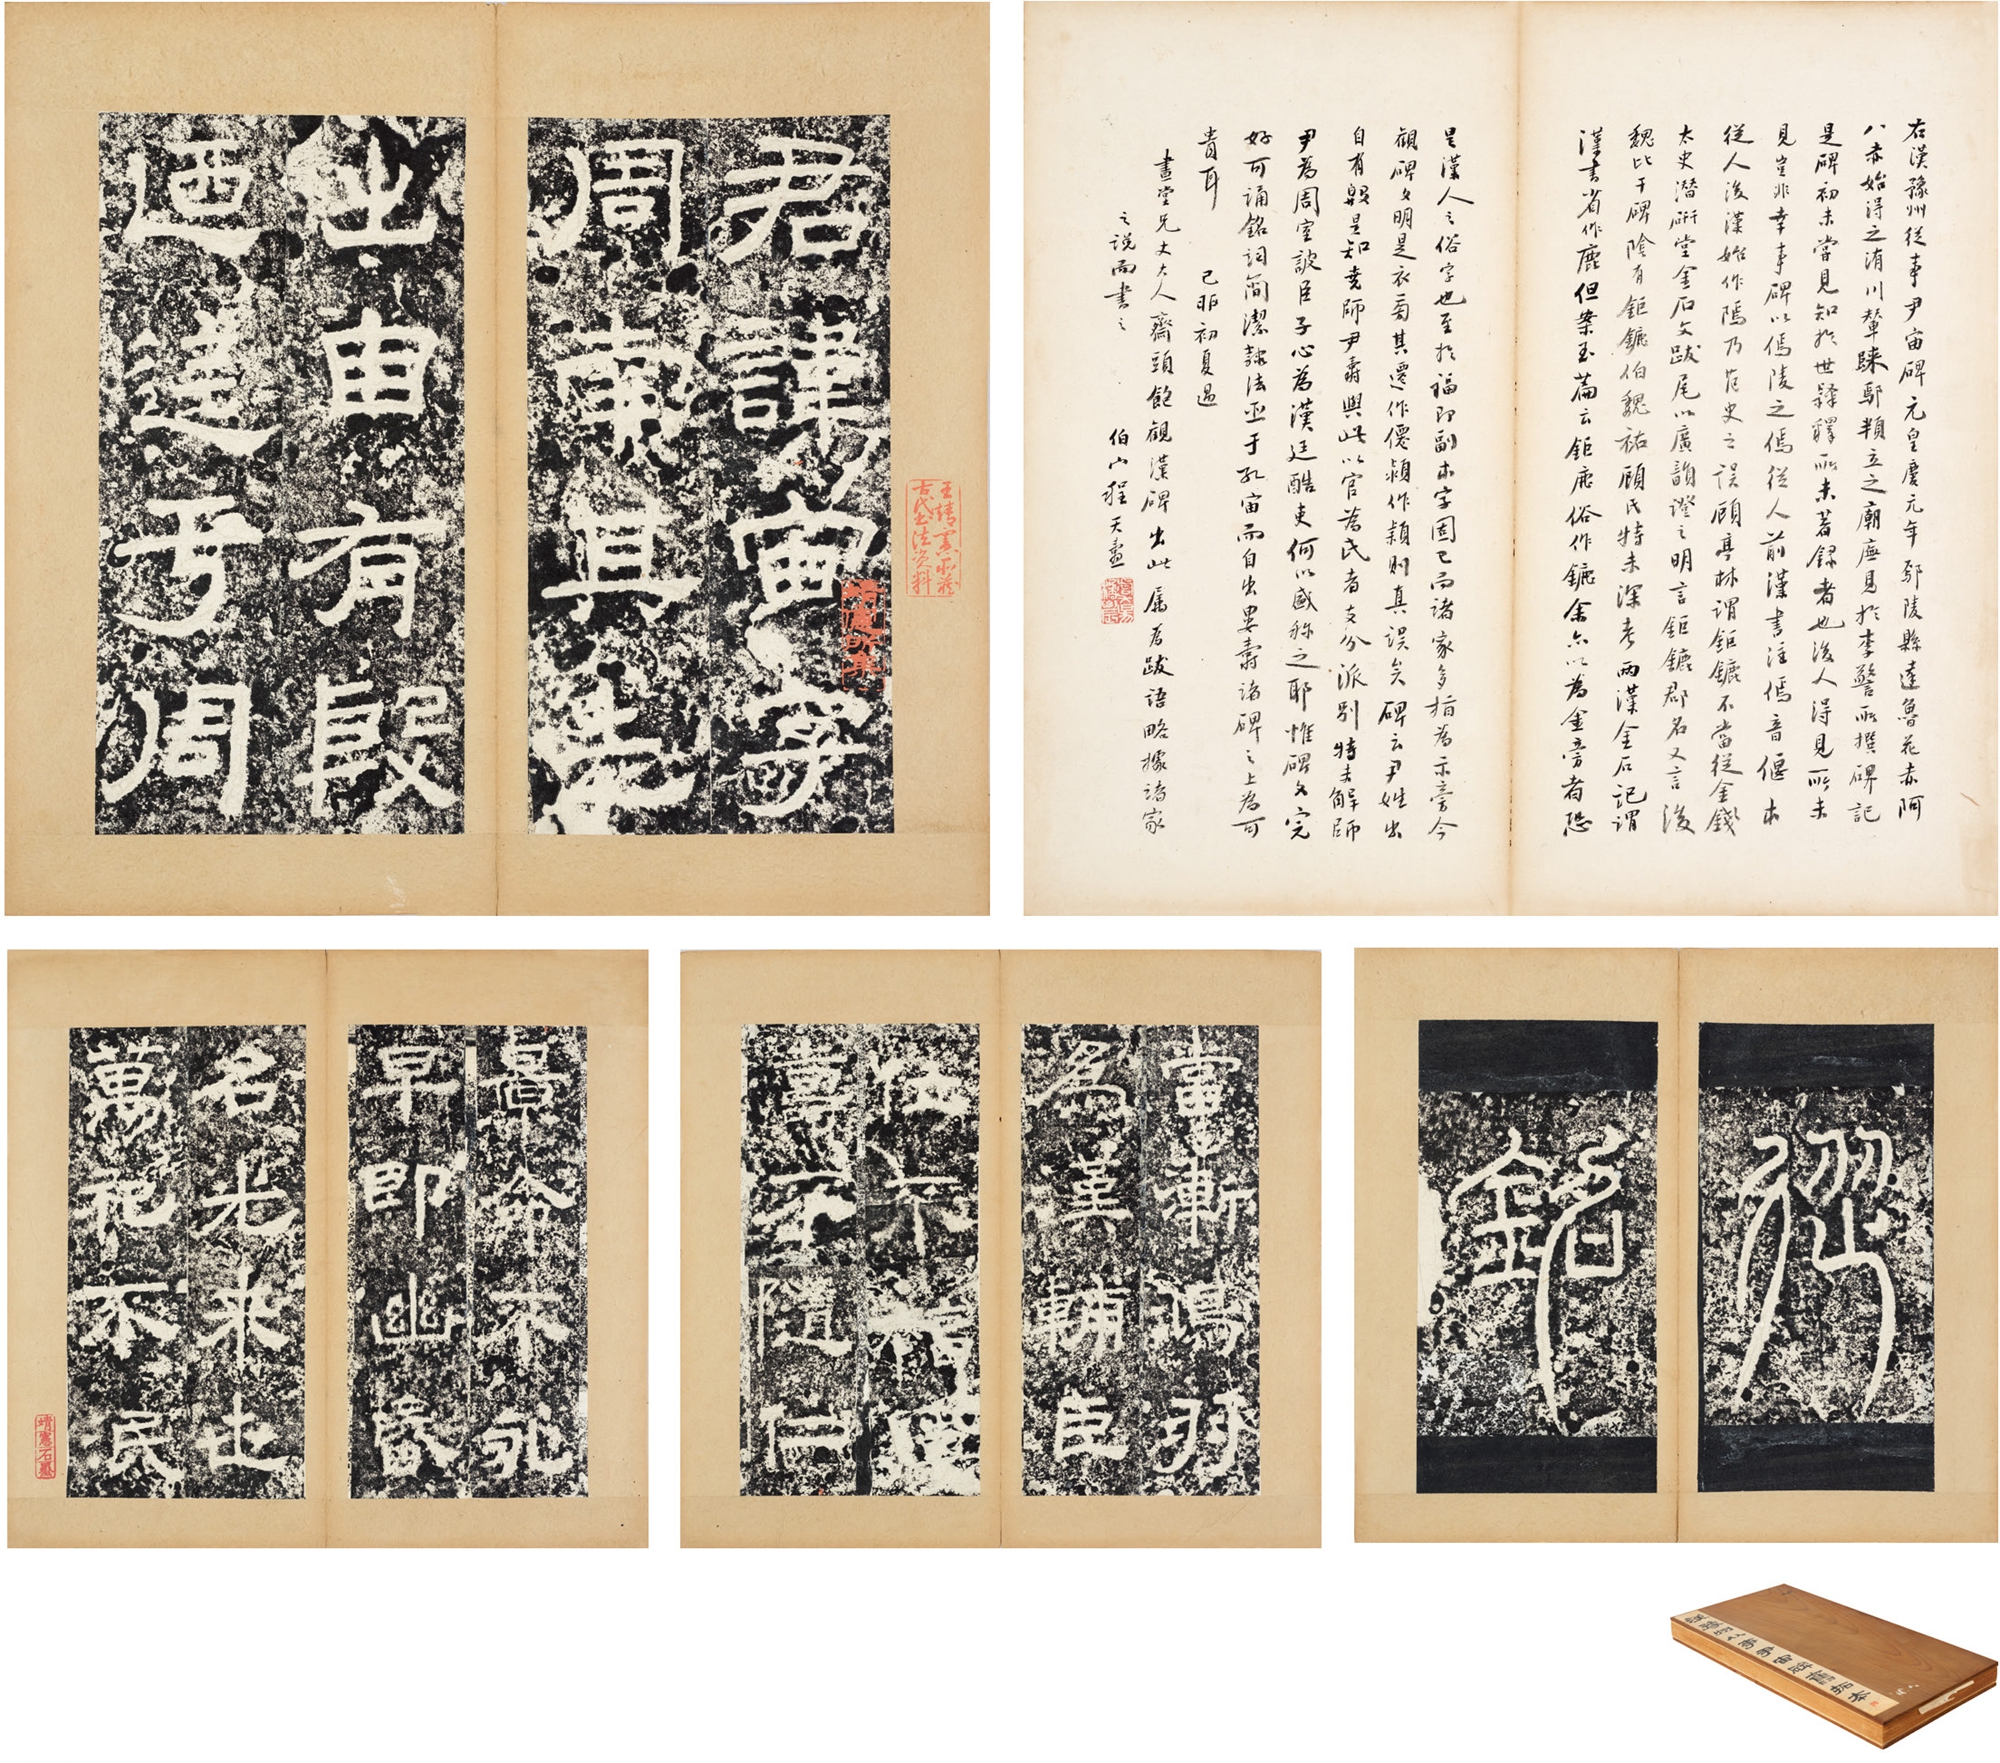 君諱宙字
周南其先
出自有殷
迺迄于周
王靖憲平癸
古代書法資料
右漢豫州從事尹宙碑元皇慶元年鄢陵縣達魯花赤阿
八赤始得之洧川輦疎鄢類立之廟廡見於李警所撰碑記
是碑初未嘗見知於世隸釋所未著錄者也後人得見所未
見豈非幸事碑以傿陵之傿從人前漢書注傿音偃本
從人後漢始作隱乃范史之誤顧亭林謂鉅鏕不當從金錢
太史潛研堂金石文跋尾以廣韻證之明言鉅鏕郡名又言後
魏比干碑陰有鉅鏕伯魏祐顧氏特未深考兩漢金石記謂
漢書省作鹿但案玉篇云鉅鹿俗作鏕余亦以為金旁者恐
是漢人之俗字也至於福即副本字固已而諸家多指為示旁今
觀碑文明是衣旁其遷作僊潁作穎則真誤矣碑云尹姓出
自有殷是知堯師尹壽與此以官為氏者支分派別特未解師
尹為周室詖臣子心為漢廷酷吏何以盛称之耶惟碑文完
好可誦銘詞簡潔隸法亞于孔宙而自出婁壽諸碑之上為可
貴耳
己卯初夏過
畫堂兄丈大人齋頭飽觀漢碑出此屬为跋語略據諸家
之說而書之
伯山程天畫
景命不永
早即幽昬
名光来世
萬祀不泯
靖憲石墨
當漸鴻羽
為漢輔臣
位不福德
壽不隨仁
從
銘
漢豫州從事尹宙碑舊拓本